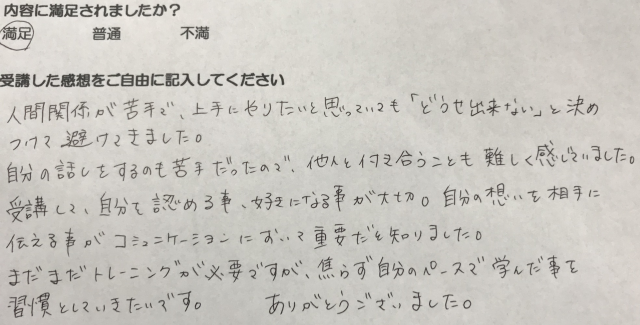 内容に満足されましたか?
満足 普通 不満
受講した感想をご自由に記入してください
人間関係が苦手で、上手にやりたいと思っていても「どうせ出来ない」と決め
つけて避けてきました。
自分の話しをするのも苦手だったので、他人と付き合うことも難しく感じていました。
受講して、自分を認める事、好きになる事が大切。自分の想いを相手に
伝える事がコミュニケーションにおいて重要だと知りました。
まだまだトレーニングが必要ですが、焦らず自分のペースで学んだ事を
習慣としていきたいです。 ありがとうございました。